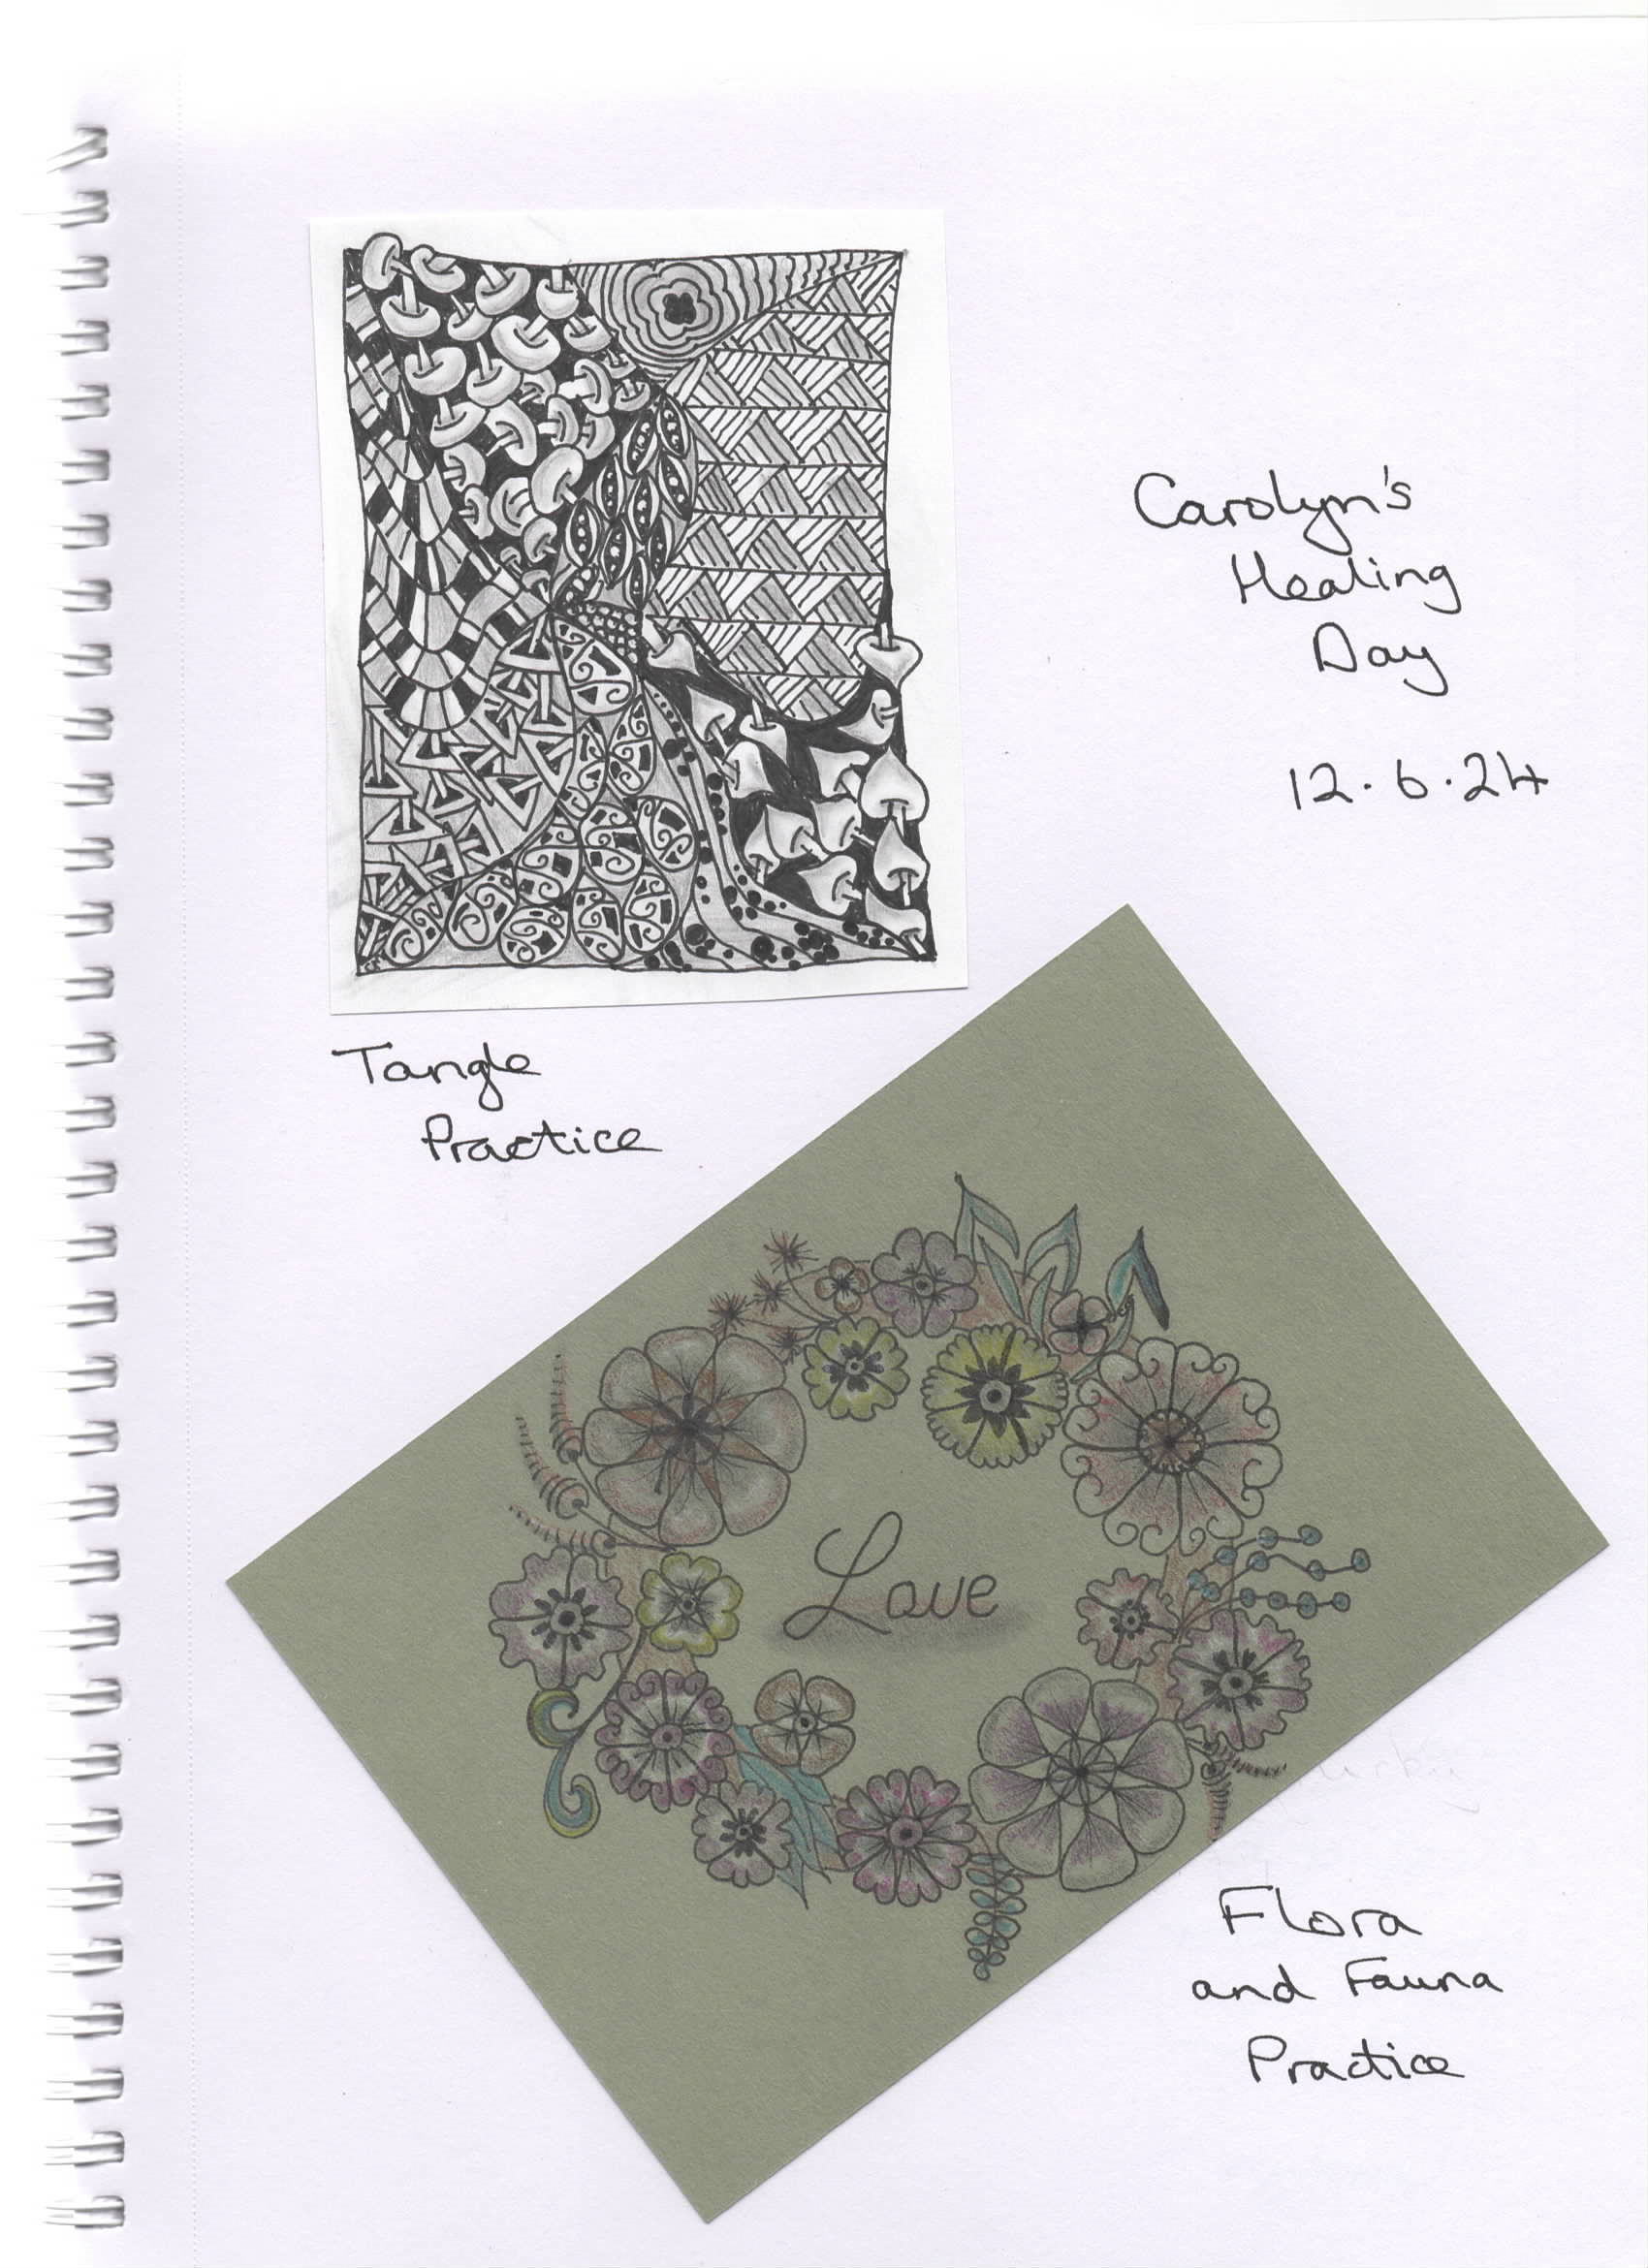 Carolyn's
Healing
Day
12.6.24
Tangle
Practice
Love
Flora
and Fauna
Practice